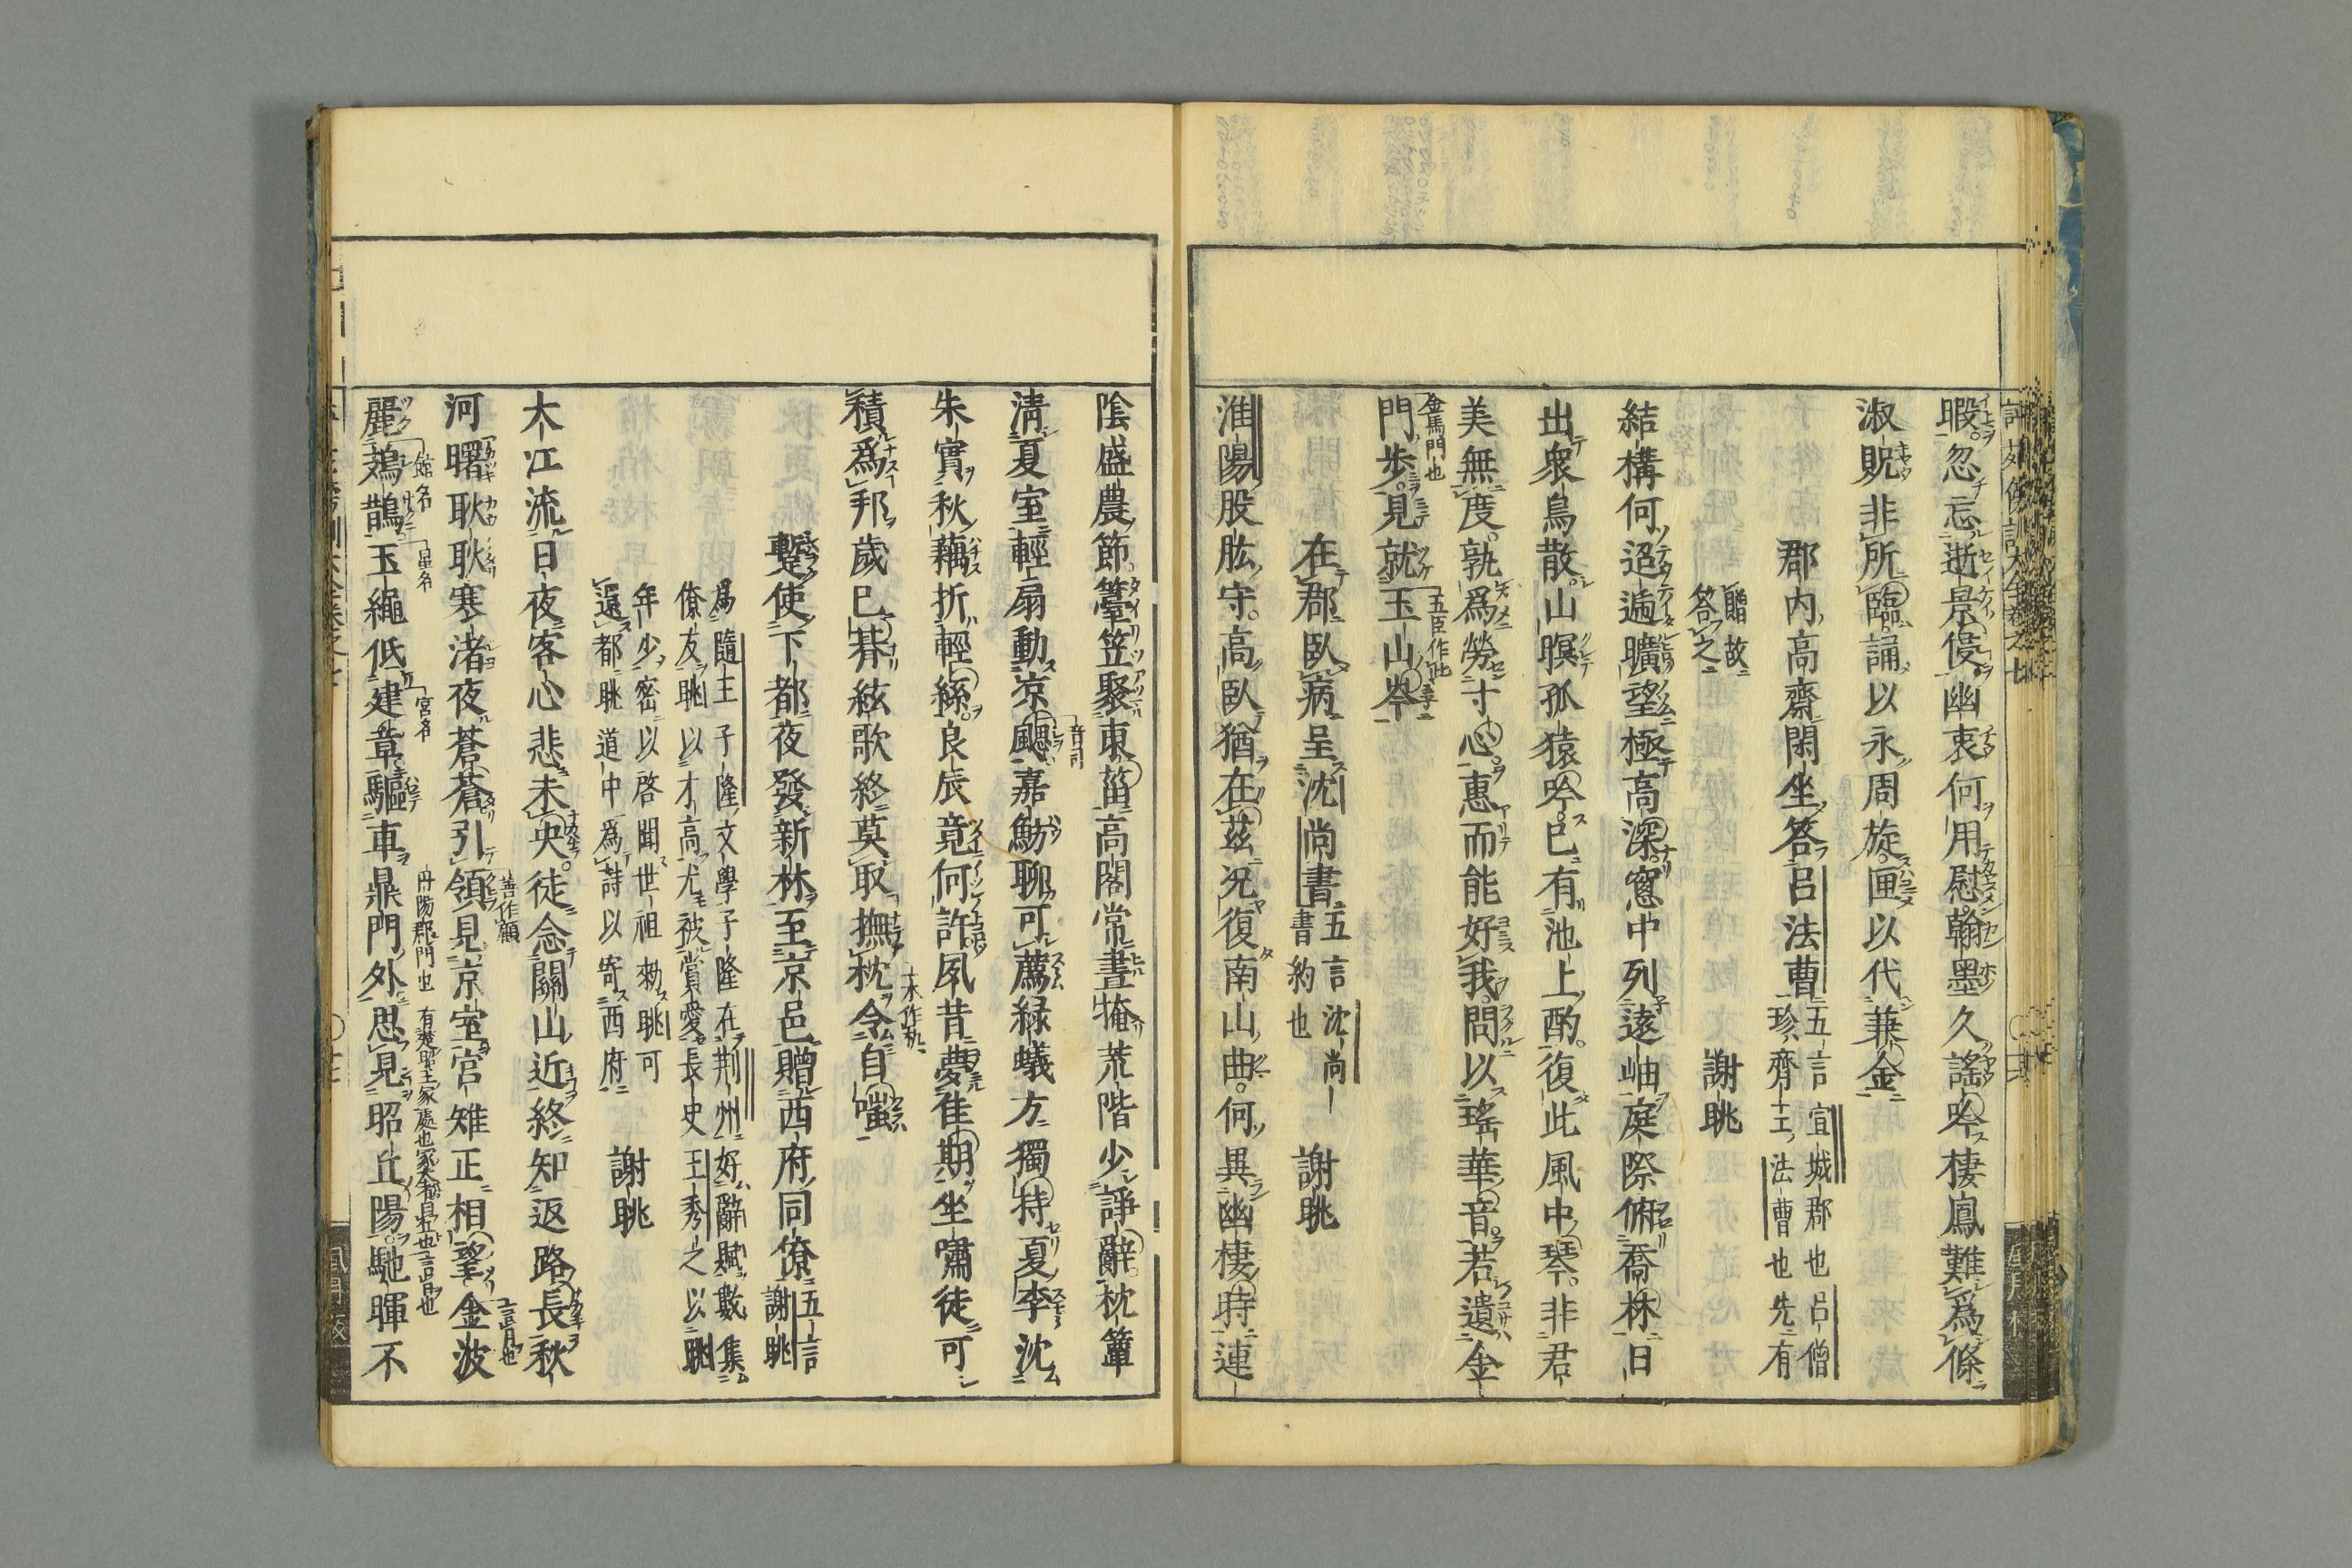 暇忽忘逝景侵幽衷何用慰翰墨久謠吟棲鳳難爲條
淑貺非所臨誦以永周旋匣以代兼金
郡内高齋閑坐答呂法曹
五言宣城郡也呂僧
珍齊王法曹也先有
贈故
答之
謝眺
結構何迢遰曠望極高深窻中列遠岫庭際俯喬林日
出衆鳥散山暝孤猿吟已有池上酌復此風中琴非君
美無度孰爲勞寸心惠而能好我問以瑤華音若遺金
門步見就玉山岑
金馬門也
五臣作此
在郡臥病呈沈尚書
五言沈尚
書約也
謝眺
淮陽股肱守高臥猶在茲況復南山曲何異幽棲時連
陰盛農節籉笠聚東菑高閣常晝掩荒階少諍辭枕簟
清夏室輕扇動凉颸嘉魴聊可薦緑蟻方獨持夏李沈
音司
朱實秋藕折輕絲良辰竟何許夙昔夢佳期坐嘯徒可
積爲邦歲已朞絃歌終莫取撫枕令自嗤
蹔使下都夜發新林至京邑贈西府同僚
五言
謝眺
爲隨王子隆文學子隆在荆州好辭賦數集
僚友眺以才高尤被賞愛長史王秀之以眺
年少密以啓聞世祖勑眺可
還都眺道中爲詩以寄西府
謝眺
大江流日夜客心悲未央徒念關山近終知返路長秋
河曙耿耿寒渚夜蒼蒼引領見京室宮雉正相望金波
善作顧
言月也
麗鳷鵲玉繩低建章驅車鼎門外思見昭丘陽馳暉不
館名
星名
宮名
丹陽郡門也